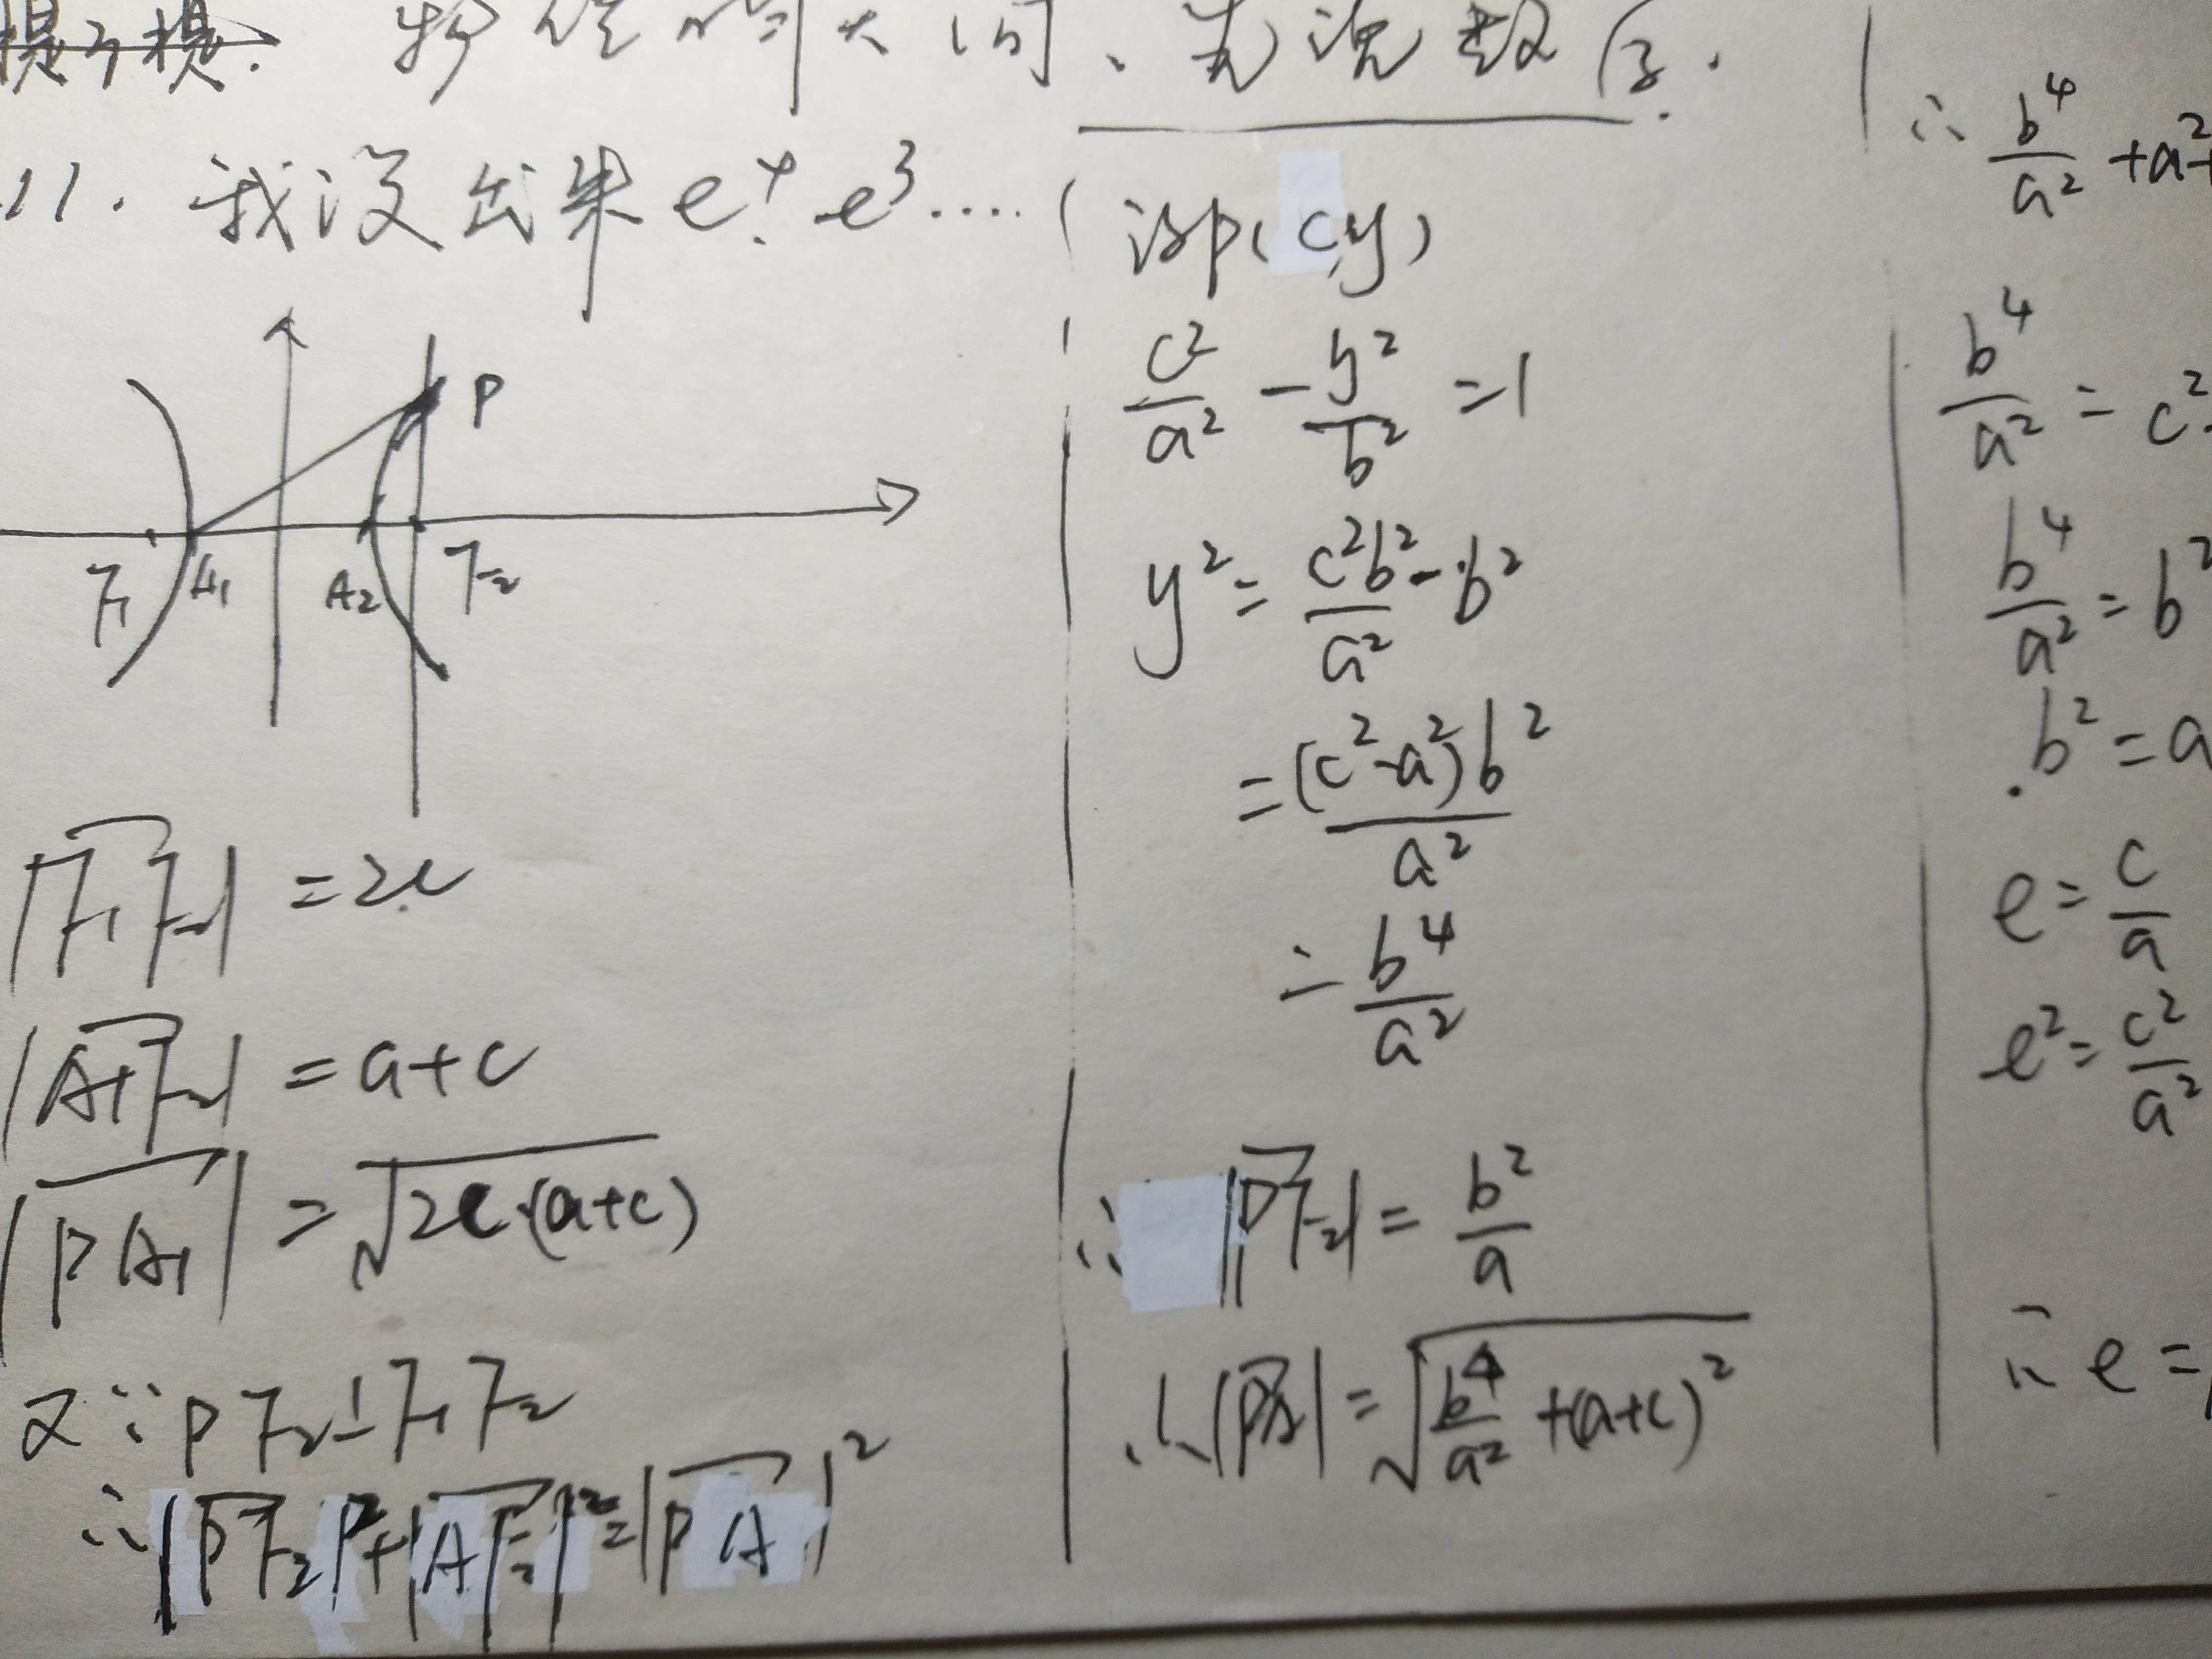 先说数学.
11. 我没出来 e⁴、e³ ....
P
F₁ A₁ A₂ F₂
|F₁F₂| = 2c
|A₁F₂| = a+c
|PA₁| = √(2c·(a+c))
又∵PF₂⊥F₁F₂
∴|PF₂|²+|AF₂|²=|PA|²
设P(c,y)
c²/a² - y²/b² = 1
y² = c²b²/a² - b²
= (c²-a²)b²/a²
= b⁴/a²
∴ |PF₂| = b²/a
∴|PA| = √(b⁴/a² + (a+c)²)
∴ b⁴/a² + a²+
b⁴/a² = c²
b⁴/a² = b²
b² = a
e = c/a
e² = c²/a²
∴ e =